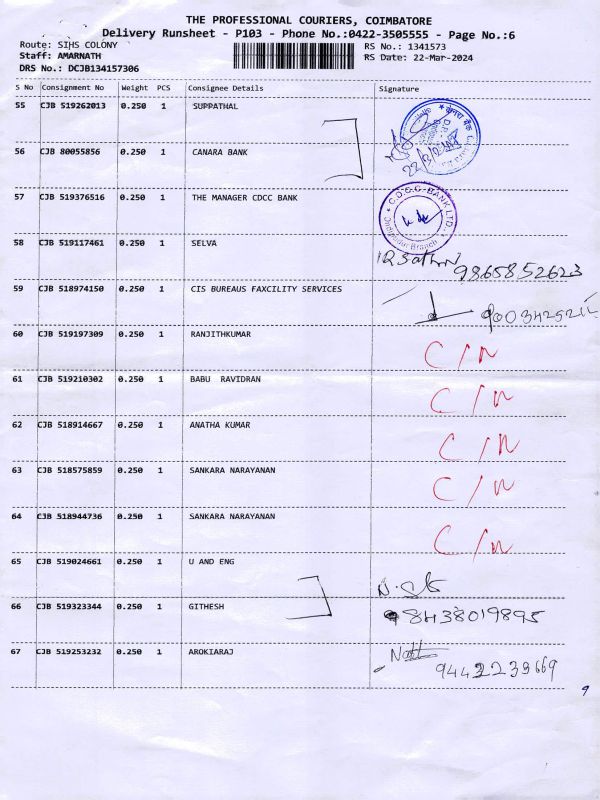 THE PROFESSIONAL COURIERS, COIMBATORE
Delivery Runsheet - P103 - Phone No.:0422-3505555 - Page No.:6
Route: SIHS COLONY RS No.: 1341573
Staff: AMARNATH RS Date: 22-Mar-2024
DRS No.: DCJB134157306
S No Consignment No Weight PCS Consignee Details Signature
55 CJB 519262013 0.250 1 SUPPATHAL
56 CJB 80055856 0.250 1 CANARA BANK
57 CJB 519376516 0.250 1 THE MANAGER CDCC BANK
C.D.C.C. BANK LTD.
Branch
58 CJB 519117461 0.250 1 SELVA
9865852623
59 CJB 518974150 0.250 1 CIS BUREAUS FAXCILITY SERVICES
60 CJB 519197309 0.250 1 RANJITHKUMAR C/N
61 CJB 519210302 0.250 1 BABU RAVIDRAN C/N
62 CJB 518914667 0.250 1 ANATHA KUMAR C/N
63 CJB 518575859 0.250 1 SANKARA NARAYANAN C/N
64 CJB 518944736 0.250 1 SANKARA NARAYANAN C/N
65 CJB 519024661 0.250 1 U AND ENG
66 CJB 519323344 0.250 1 GITHESH 8438019895
67 CJB 519253232 0.250 1 AROKIARAJ
9442239669
9